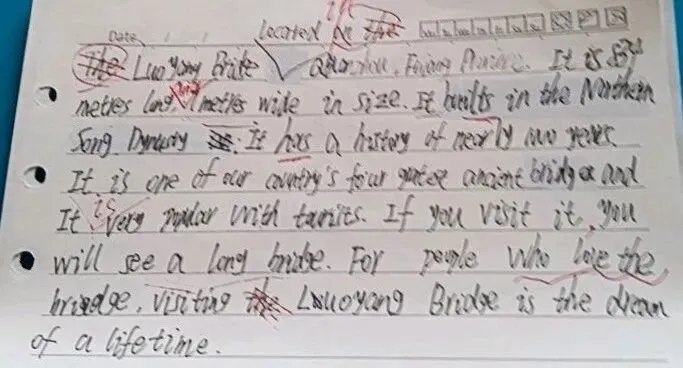 in
Date located in the
The Luoyang Bridge Quanzhou, Fujian Province. It is 834
metres long, and 7 metres wide in size. It builts in the Northern
Song Dynasty. It has a history of nearly years.
It is one of our country's four ancient bridges and
It is very popular with tourists. If you visit it, you
will see a long bridge. For people who love the
bridge, visiting the Luoyang Bridge is the dream
of a lifetime.